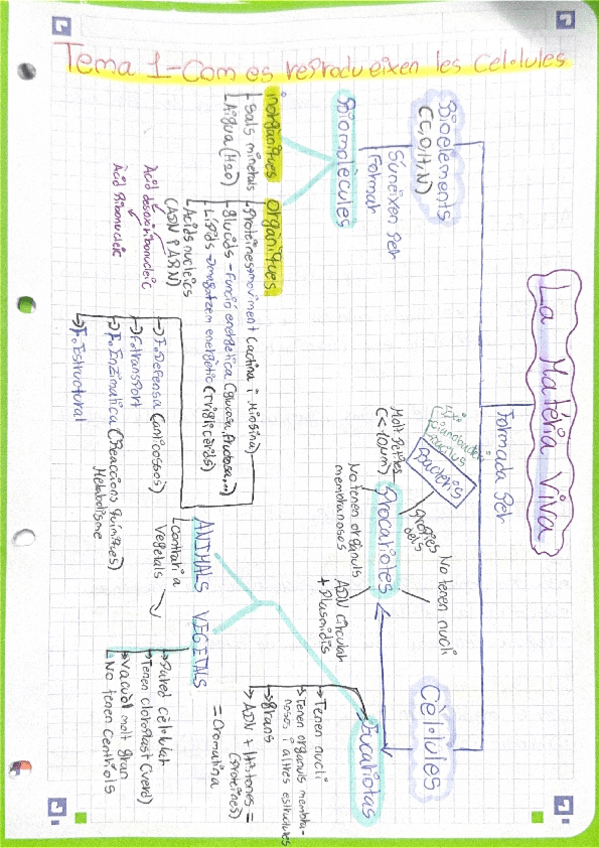 Tema 1-Com es reprodueixen les cel·lules
La Matèria Viva
Formada per
Bioelements
(C,O,H,N)
S'uneixen per
Formar
Biomolècules
inorgàniques
Sals minerals
Aigua (H2O)
orgàniques
Proteïnes→moviment (actina i Miosina)
Glúcids - Funció energètica (glucosa, fructosa,...)
Lípids → magatzem energètic (Triglicèrids)
Àcids nucleics
(ADN i ARN)
Àcid desoxiribonucleic
Àcid Ribonucleic
F. Defensa (anticossos)
F. transport
F. Enzimàtica (Reaccions químiques)
Metabolisme
F. Estructural
Cèl·lules
Procariotes
No tenen nucli
Pròpies
dels
Bacteris
Molt petites
(<10µm)
No tenen orgànuls
membranosos
ADN circular
+ Plasmidis
Eucariotas
Tenen nucli
Tenen orgànuls membra-
nosos i altres estructures
grans
ADN + Histones =
(Proteïnes)
= Cromatina
ANIMALS
Contraria
Vegetals
VEGETALS
Pared cèl·lular
Tenen cloroplast (verd)
Vacuol molt gran
No tenen Centriols